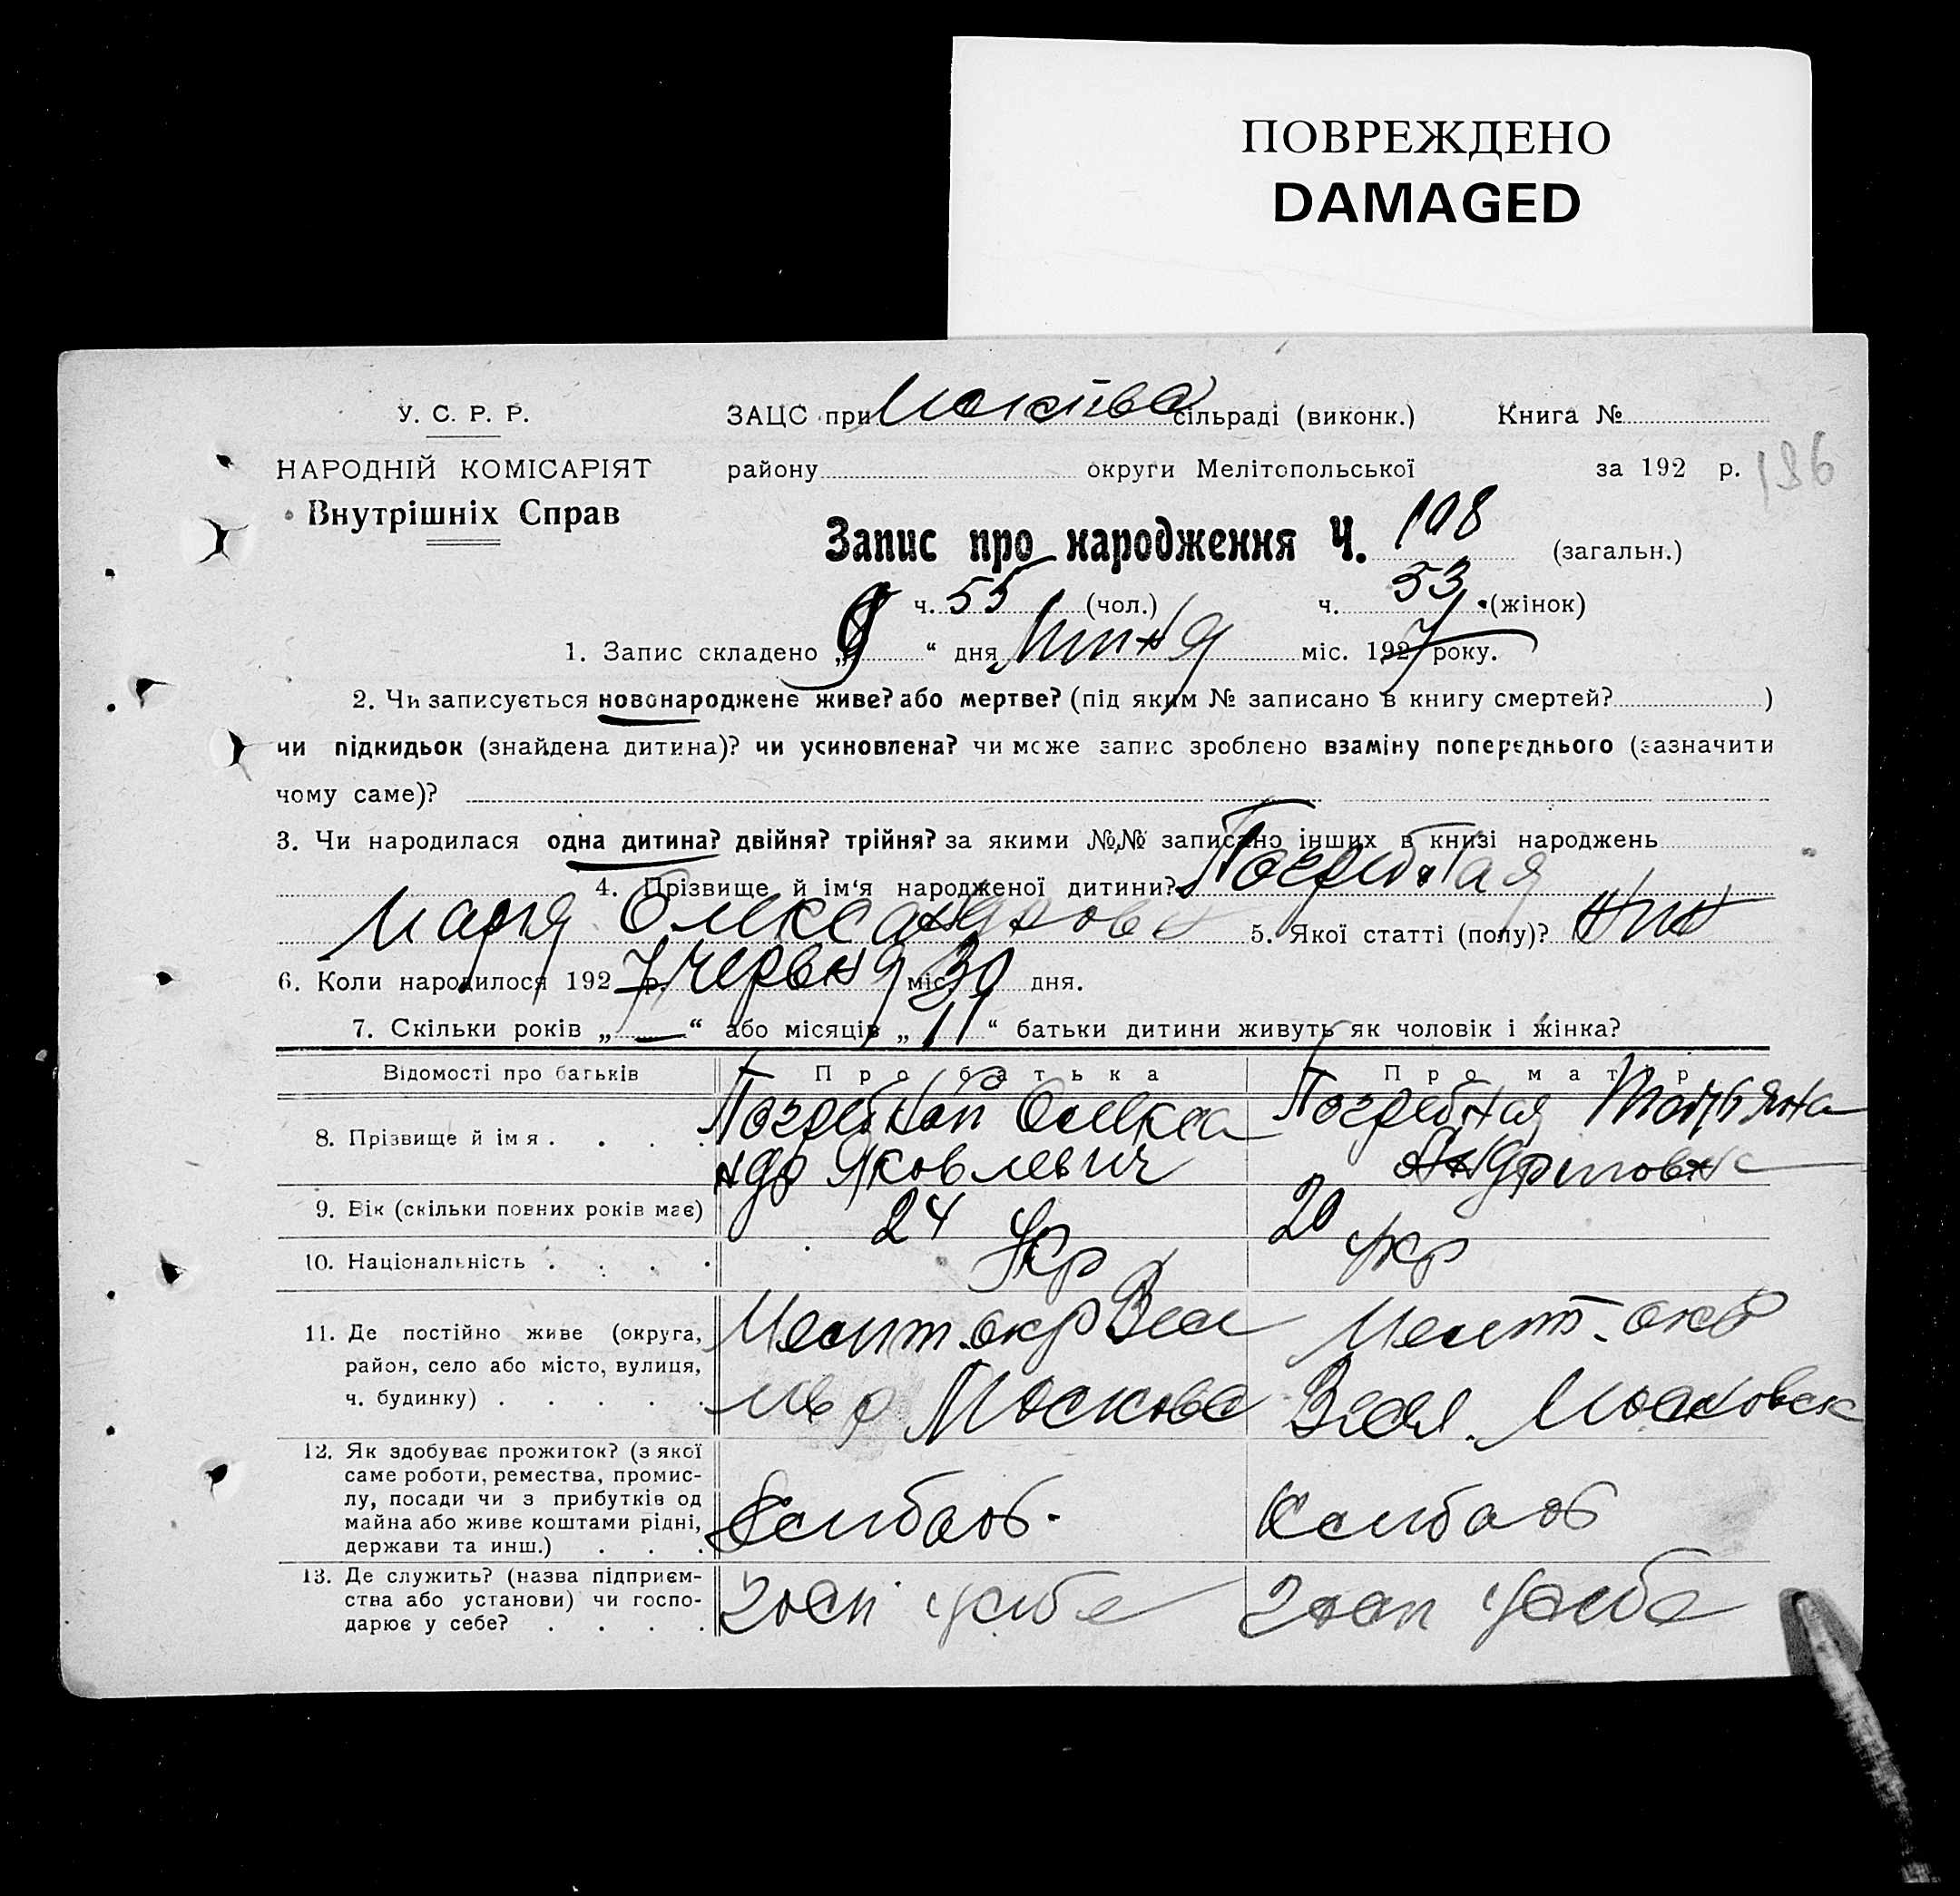 ПОВРЕЖДЕНО
DAMAGED
У. С. Р. Р.
НАРОДНІЙ КОМІСАРІЯТ
Внутрішніх Справ
ЗАЦС при сільраді (виконк.) Книга №
району округи Мелітопольської за 192 р. 186
Запис про народження Ч. 108 (загальн.)
ч. 55 (чол.) ч. 53 (жінок)
1. Запис складено „9“ дня Липня міс. 1927 року.
2. Чи записується новонароджене живе? або мертве? (під яким № записано в книгу смертей? )
чи підкидьок (знайдена дитина)? чи усиновлена? чи може запис зроблено взаміну попереднього (зазначити
чому саме)?
3. Чи народилася одна дитина? двійня? трійня? за якими №№ записано інших в книзі народжень
4. Прізвище й ім‘я народженої дитини? Погребная
Мария Олександровн 5. Якої статті (полу)?
6. Коли народилося 1927 р. Червня міс. 30 дня.
7. Скільки років „—“ або місяців „11“ батьки дитини живуть як чоловік і жінка?
Відомості про батьків Про батька Про матір
8. Прізвище й імя . . . . Погребной Олекса Погребная Татьяна
ндр Яковлевич
9. Вік (скільки повних років має) 24 20
10. Національність . . . . Укр Укр
11. Де постійно живе (округа, Мелит окр Весел Мелит. окр
район, село або місто, вулиця,
ч. будинку) . . . . . Московка Весел. Московк
12. Як здобуває прожиток? (з якої
саме роботи, ремества, промис-
лу, посади чи з прибутків од
майна або живе коштами рідні, Хлибороб. Хлибороб
держави та инш.) . . .
13. Де служить? (назва підприєм-
ства або установи) чи госпо- Хозп усебе Хозп усебе
дарює у себе? . . . .